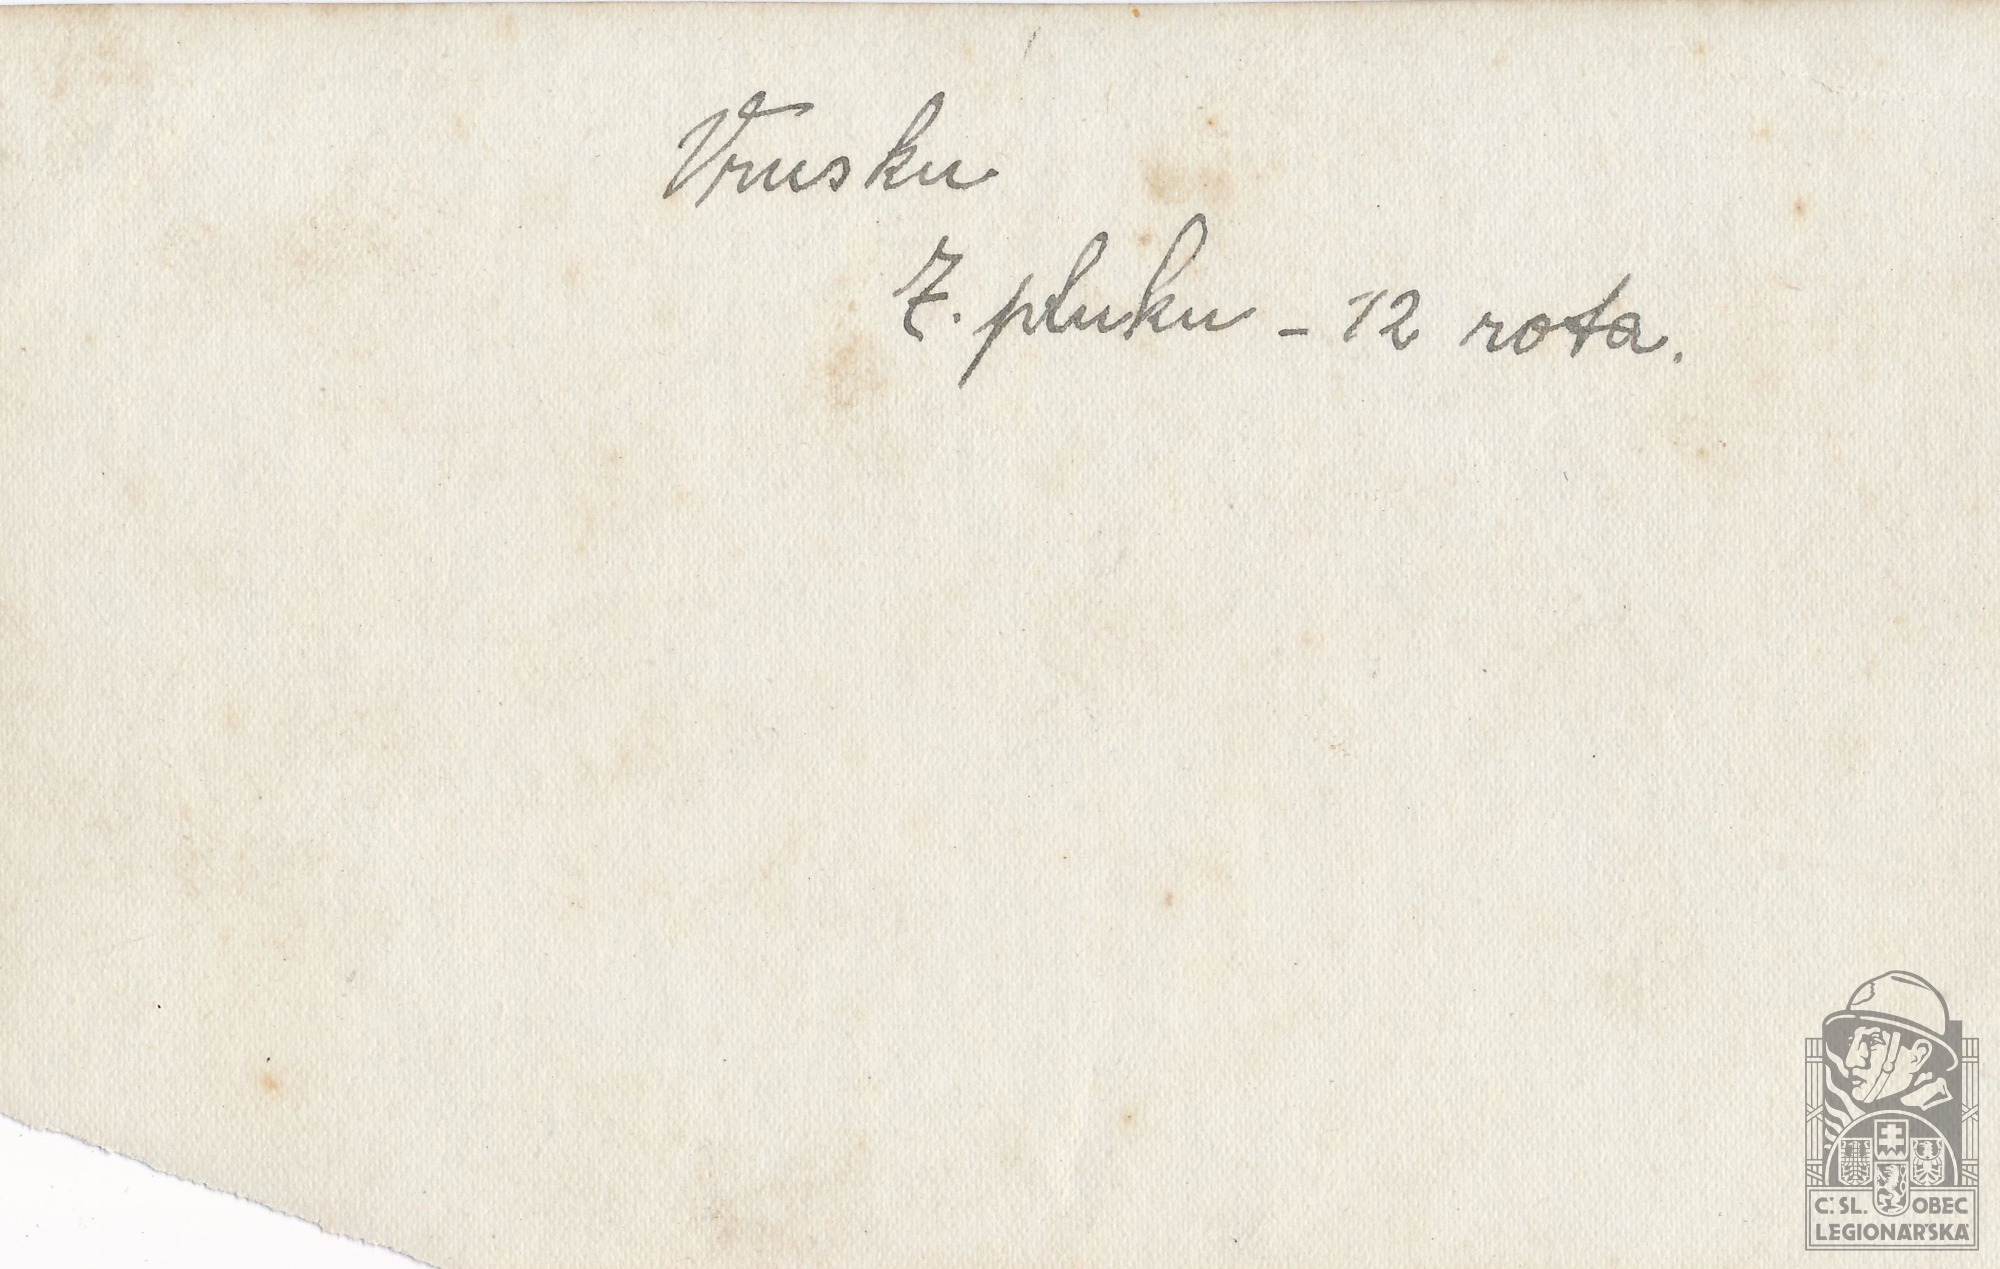 Vrusku
7. pluku - 12 rota.
Č. SL. OBEC
LEGIONÁŘSKÁ